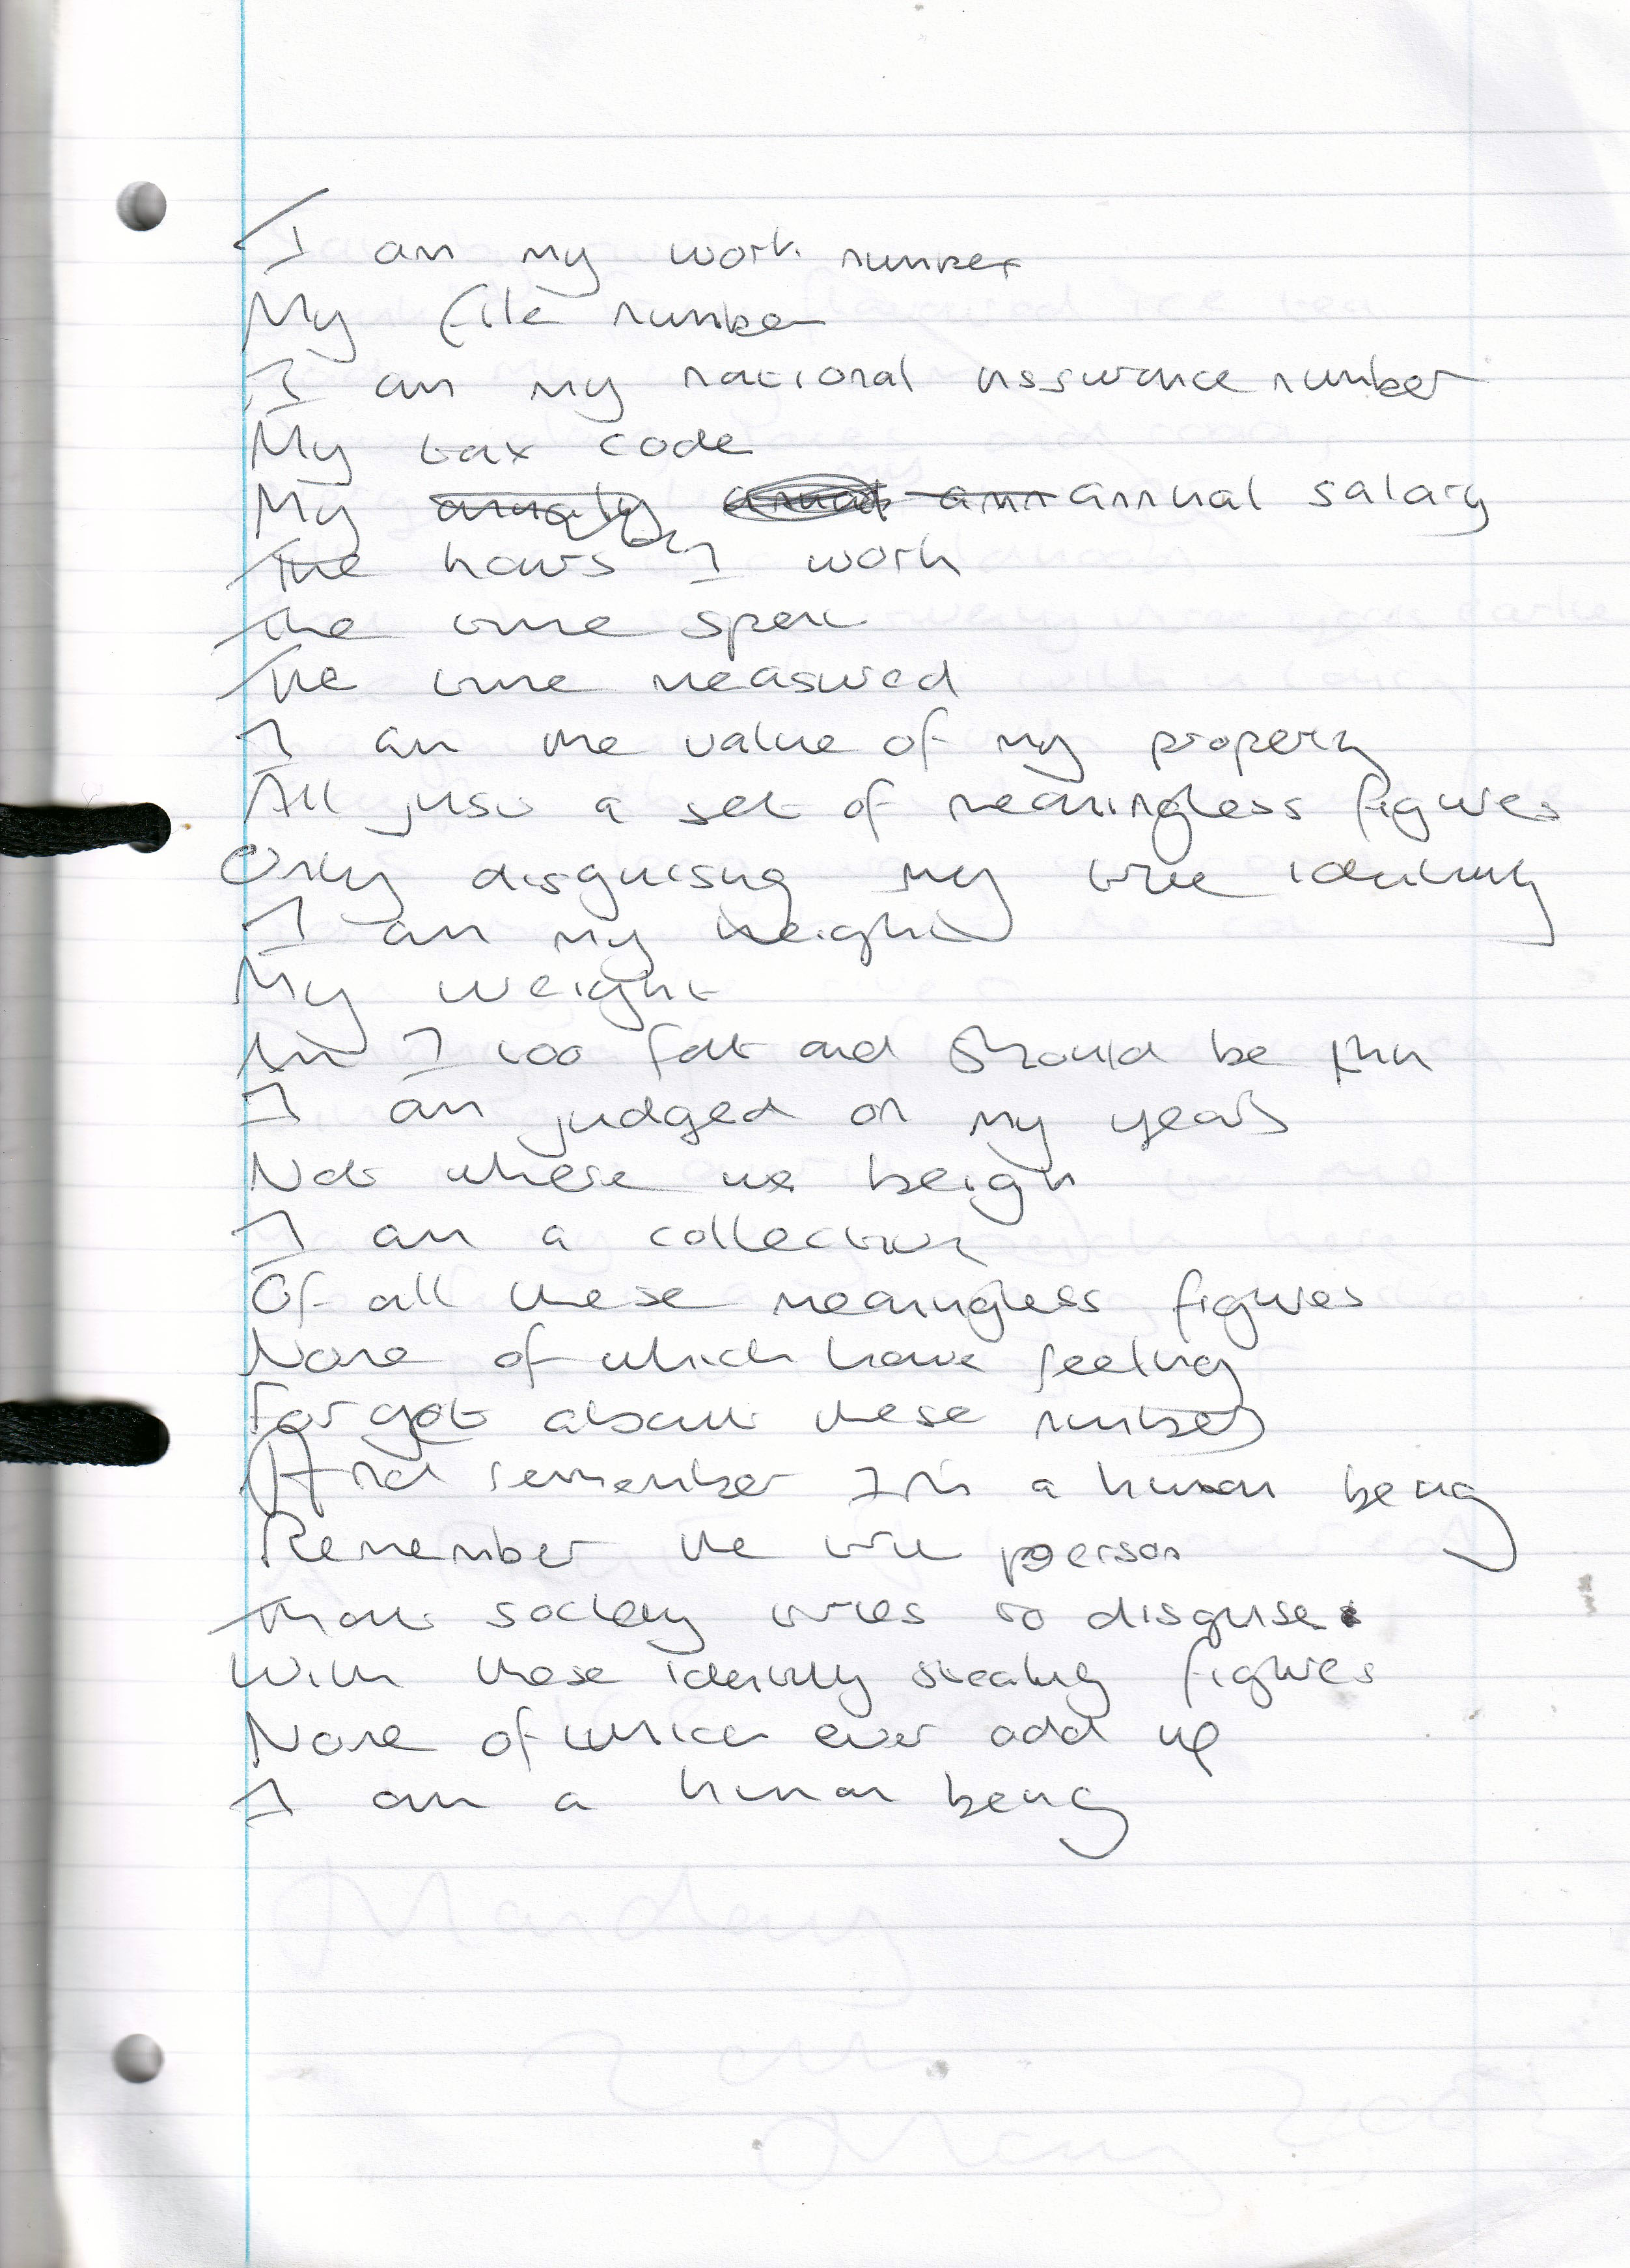 I am my work number
My file number
I am my national inssurance number
My tax code
My annual salary
The hours I work
The time spent
The time measured
I am the value of my property
All just a set of meaningless figures
Only disguising my true identity
I am my height
My weight
Am I too fat and should be thin
I am judged on my years
Not where we beigh
I am a collection
Of all these meaningless figures
None of which have feeling
Forget about these numbers
And remember I'm a human being
Remember the true person
That society tries to disguise
With these identity stealing figures
None of which ever add up
I am a human being